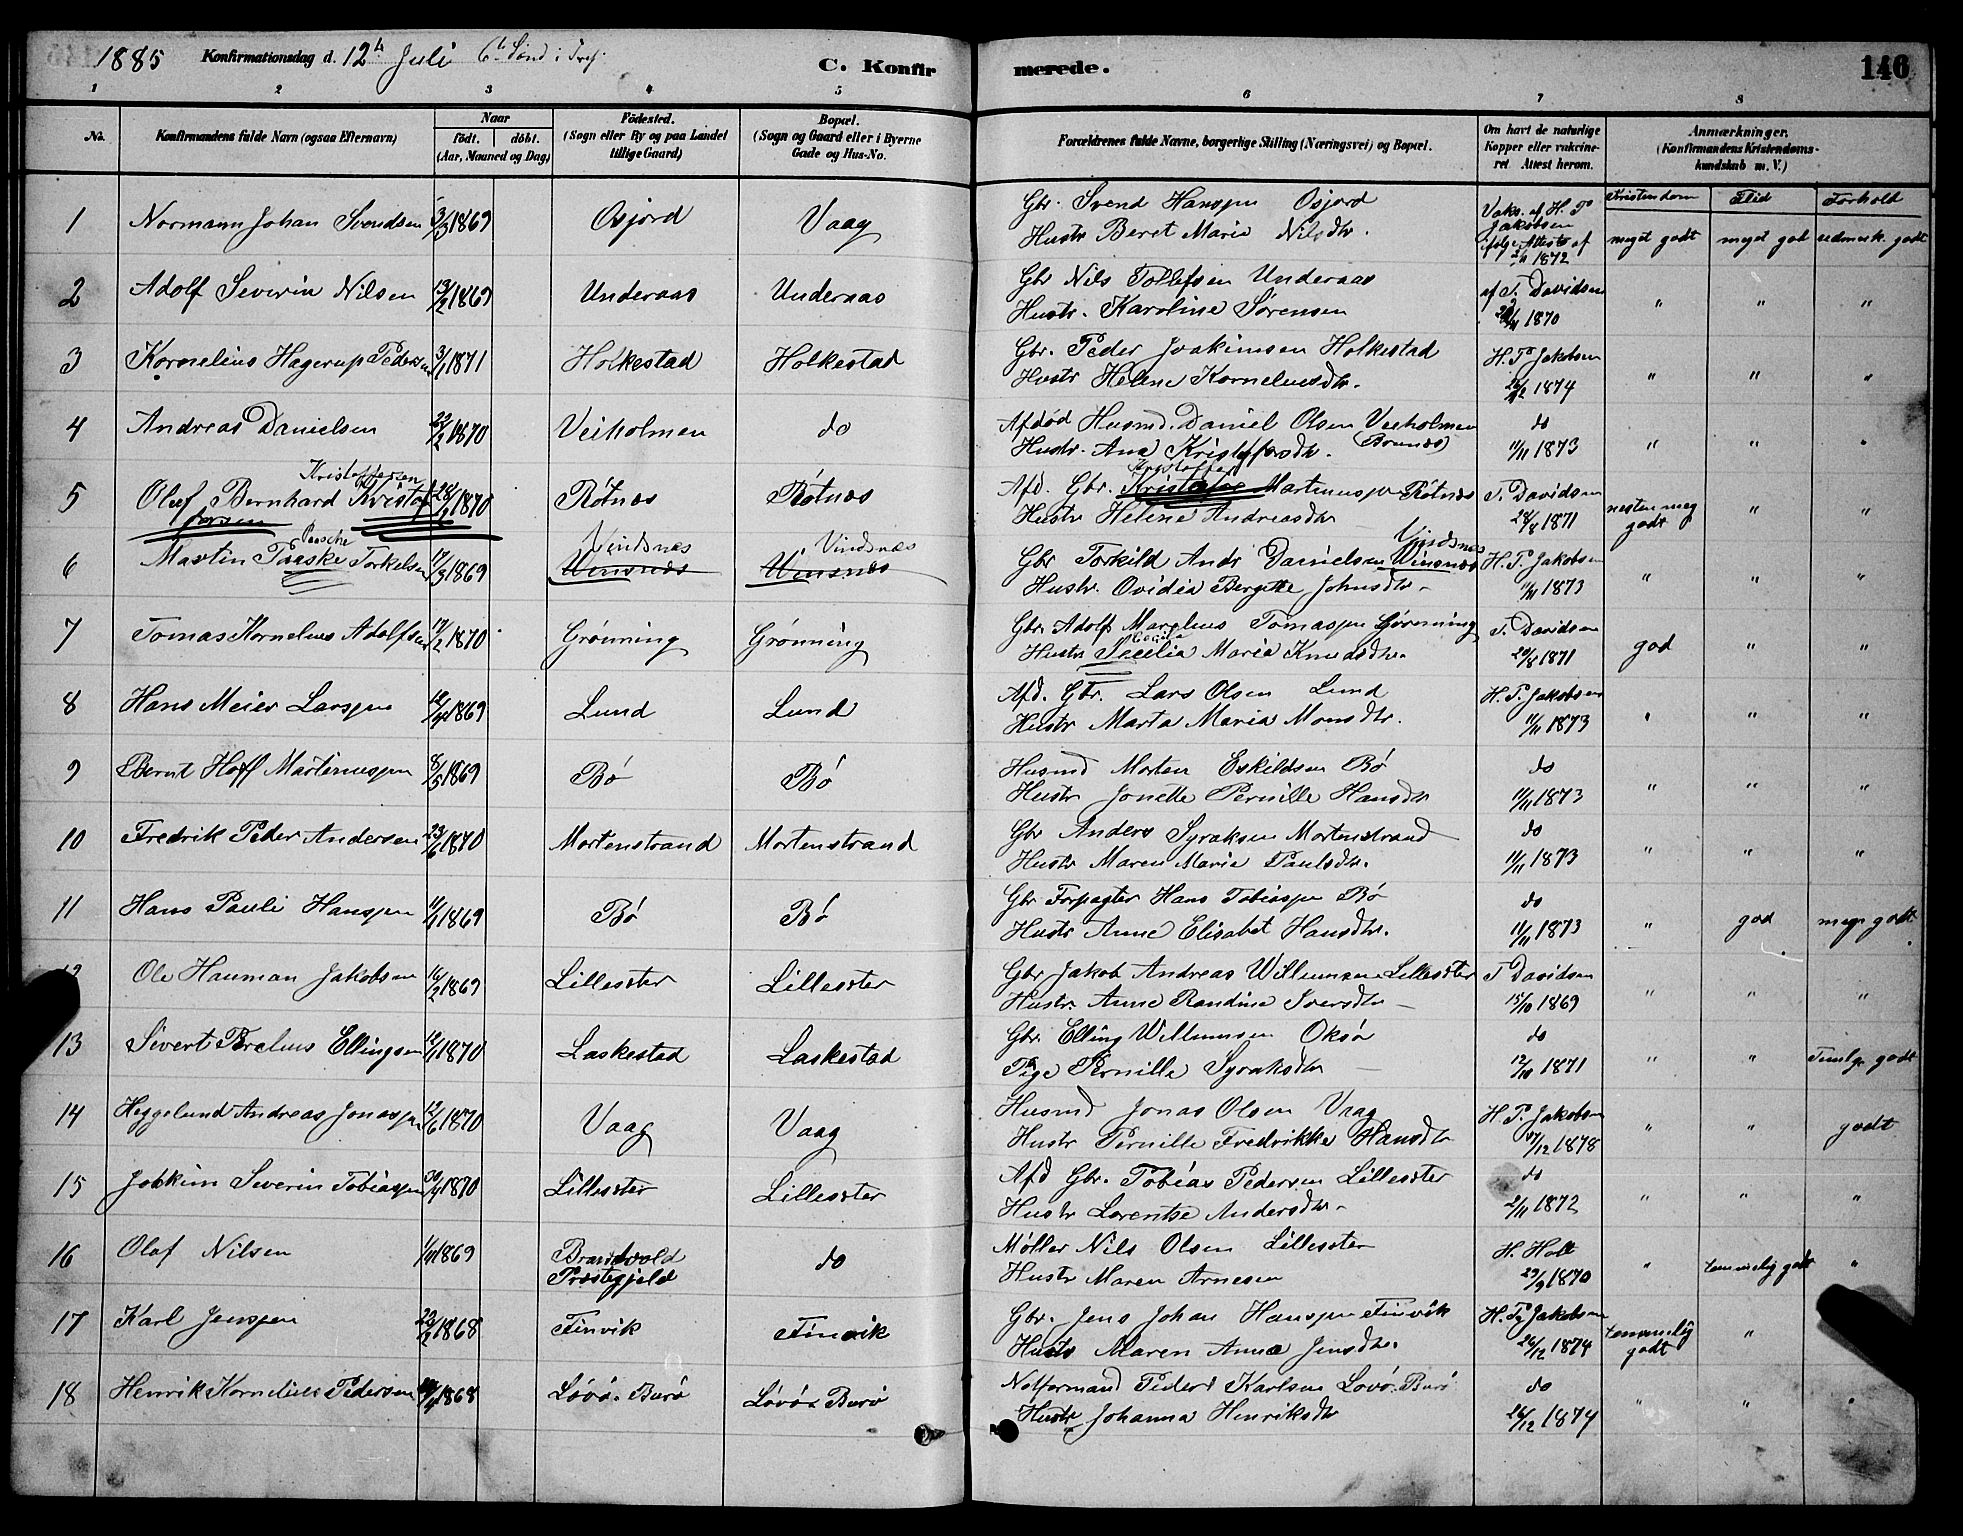 1885 Konfirmationsdag d. 12te Juli 6te Sønd. i Tref. C. Konfirmerede. 146
1 2 3 4 5 6 7 8
No. Konfirmandens fulde Navn (ogsaa Efternavn) Naar født. døbt. (Aar, Maaned og Dag) Fødested. (Sogn eller By og paa Landet tillige Gaard) Bopæl. (Sogn og Gaard eller i Byerne Gade og Hus-No. Forældrenes fulde Navne, borgerlige Stilling (Næringsvei) og Bopæl. Om havt de naturlige Kopper eller vakcineret Attest herom. Anmærkninger. (Konfirmandens Kristendomskundskab m. V.)
Kristendom Flid Forhold
1 Normann Johan Svendsen 1869 Osjord Vaag Gbr. Svend Hanssen Osjord Vaks. af H. P
Hustr Beret Maria Nilsdtr. Jakobsen ifølge Attest af 2/11 1872 meget godt meget god udmærk. godt
2 Adolf Severin Nilsen 13/2 1869 Underaas Underaas Gbr Nils Tollefsen Underaas af T. Davidsen
Hustr. Karoline Sørensen 1870 " " "
3 Kornelius Hagerup Pedersen 3/1 1871 Holkestad Holkestad Gbr. Peder Joakimsen Holkestad H. P Jakobsen
Hustr Helene Korneliusdtr. 26/12 1874 " " "
4 Andreas Danielsen 22/2 1870 Veiholmen do Afdød Husmd. Daniel Olsen Veiholmen do
Hustr. Ana Kristofersdtr. (Brunes) 11/11 1873 " " "
5 Oluf Bernhard Kristoffersen Kristoffersen 28/1 1870 Røtnæs Røtnæs Afd. Gbr. Kristofer Kristoffer Martinussen Røtnæs T. Davidsen
Hustr Helene Andreasdtr 28/8 1871 nesten meg godt " "
6 Martin Paaske Paasche Torkelsen 17/3 1869 Vinsnæs Vindsnæs Vinsnæs Vindsnæs Gbr Torkild Andr Danielsen Vinsnæs Vindsnæs H. P. Jakobsen
Hustr. Ovidia Bergitte Johnsdtr 11/11 1873 " " "
7 Tomas Kornelius Adolfsen 17/2 1870 Grønning Grønning Gbr. Adolf Marelius Tomassen Grønning T. Davidsen
Hustr Secilia Cecilia Maria Knudsdtr. 29/8 1871 god " "
8 Hans Meier Larssen 1869 Lund Lund Afd. Gbr. Lars Olsen Lund H. P. Jakobsen
Hustr Marta Maria Monsdtr. 11/11 1873 " " "
9 Bernt Hoff Martinussen 8/5 1869 Bø Bø Husmd Morten Eskildsen Bø do
Hustr Jonette Pernille Hansdtr 11/11 1873 " " "
10 Fredrik Peder Andersen 23/6 1870 Mortenstrand Mortenstrand Gbr Anders Syraksen Mortenstrand do
Hustr Maren Maria Paulsdtr. 11/11 1873 " " "
11 Hans Pauli Hanssen 1869 Bø Bø Gbr Forpagter Hans Tobiassen Bø do
Hustr Anne Elisabet Hansdtr. 11/11 1873 " god meget godt
12 Ole Hauman Jakobsen 16/2 1869 Lillesster Lillesster Gbr Jakob Andreas Willumsen Lillesster T Davidsen
Hustr. Anne Randine Iversdtr 15/10 1869 " " "
13 Sivert Parelius Ellingsen 1870 Laskestad Laskestad Gbr Elling Willumsen Oksø do
Pige Pernille Syraksdtr 12/10 1871 " " Temlge godt
14 Heggelund Andreas Jonassen 12/6 1870 Vaag Vaag Husmd Jonas Olsen Vaag H. P. Jakobsen
Hustr Pernille Fredrikke Hansdtr 1878 " " godt
15 Joakim Severin Tobiassen 1870 Lillesster Lillesster Afd Gbr. Tobias Pedersen Lillesster do
Hustr Lorentse Andersdtr 2/11 1872 " " "
16 Olaf Nilsen 1869 Brandvold Præstegjeld do Møller Nils Olsen Lillesster H. Holt
Hustr Maren Arnesen 29/9 1870 " temmelig godt "
17 Karl Jenssen 1868 Finvik Finvik Gbr. Jens Johan Hanssen Finvik H. P. Jakobsen
Hustr Maren Anna Jensdtr. 26/12 1874 temmelig godt "
18 Henrik Kornelius Pedersen 1868 Løvø Burø Løvø Burø Notformand Peder Karlsen Løvø Burø do
Hustr Johanna Henriksdtr 26/12 1874 " " "